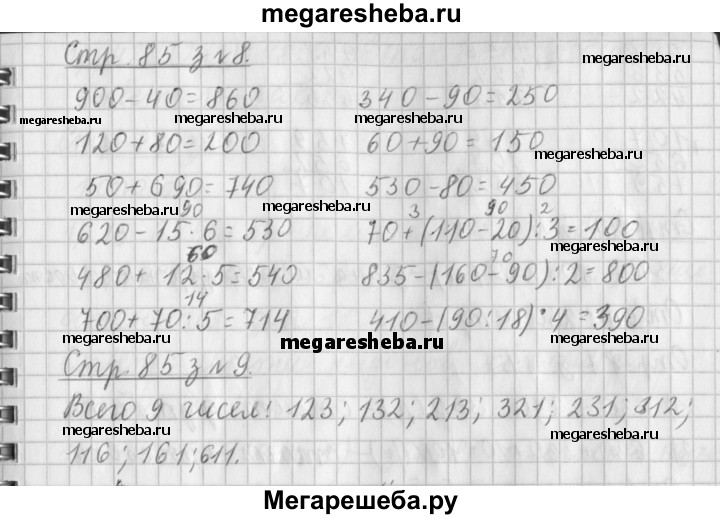 megaresheba.ru
Стр. 85 з №8.
megaresheba.ru
900-40=860 340-90=250
megaresheba.ru megaresheba.ru megaresheba.ru
120+80=200 60+90=150
megaresheba.ru
50+690=740 530-80=450
megaresheba.ru megaresheba.ru
90 3 90 2
620-15·6=530 70+(110-20):3=100
60 70
480+12·5=540 835-(160-90):2=800
14
700+70:5=714 410-(90:18)·4=390
megaresheba.ru megaresheba.ru megaresheba.ru
Стр. 85 з №9.
Всего 9 чисел: 123; 132; 213; 321; 231; 312;
megaresheba.ru megaresheba.ru
116; 161; 611.
Мегарешеба.ру